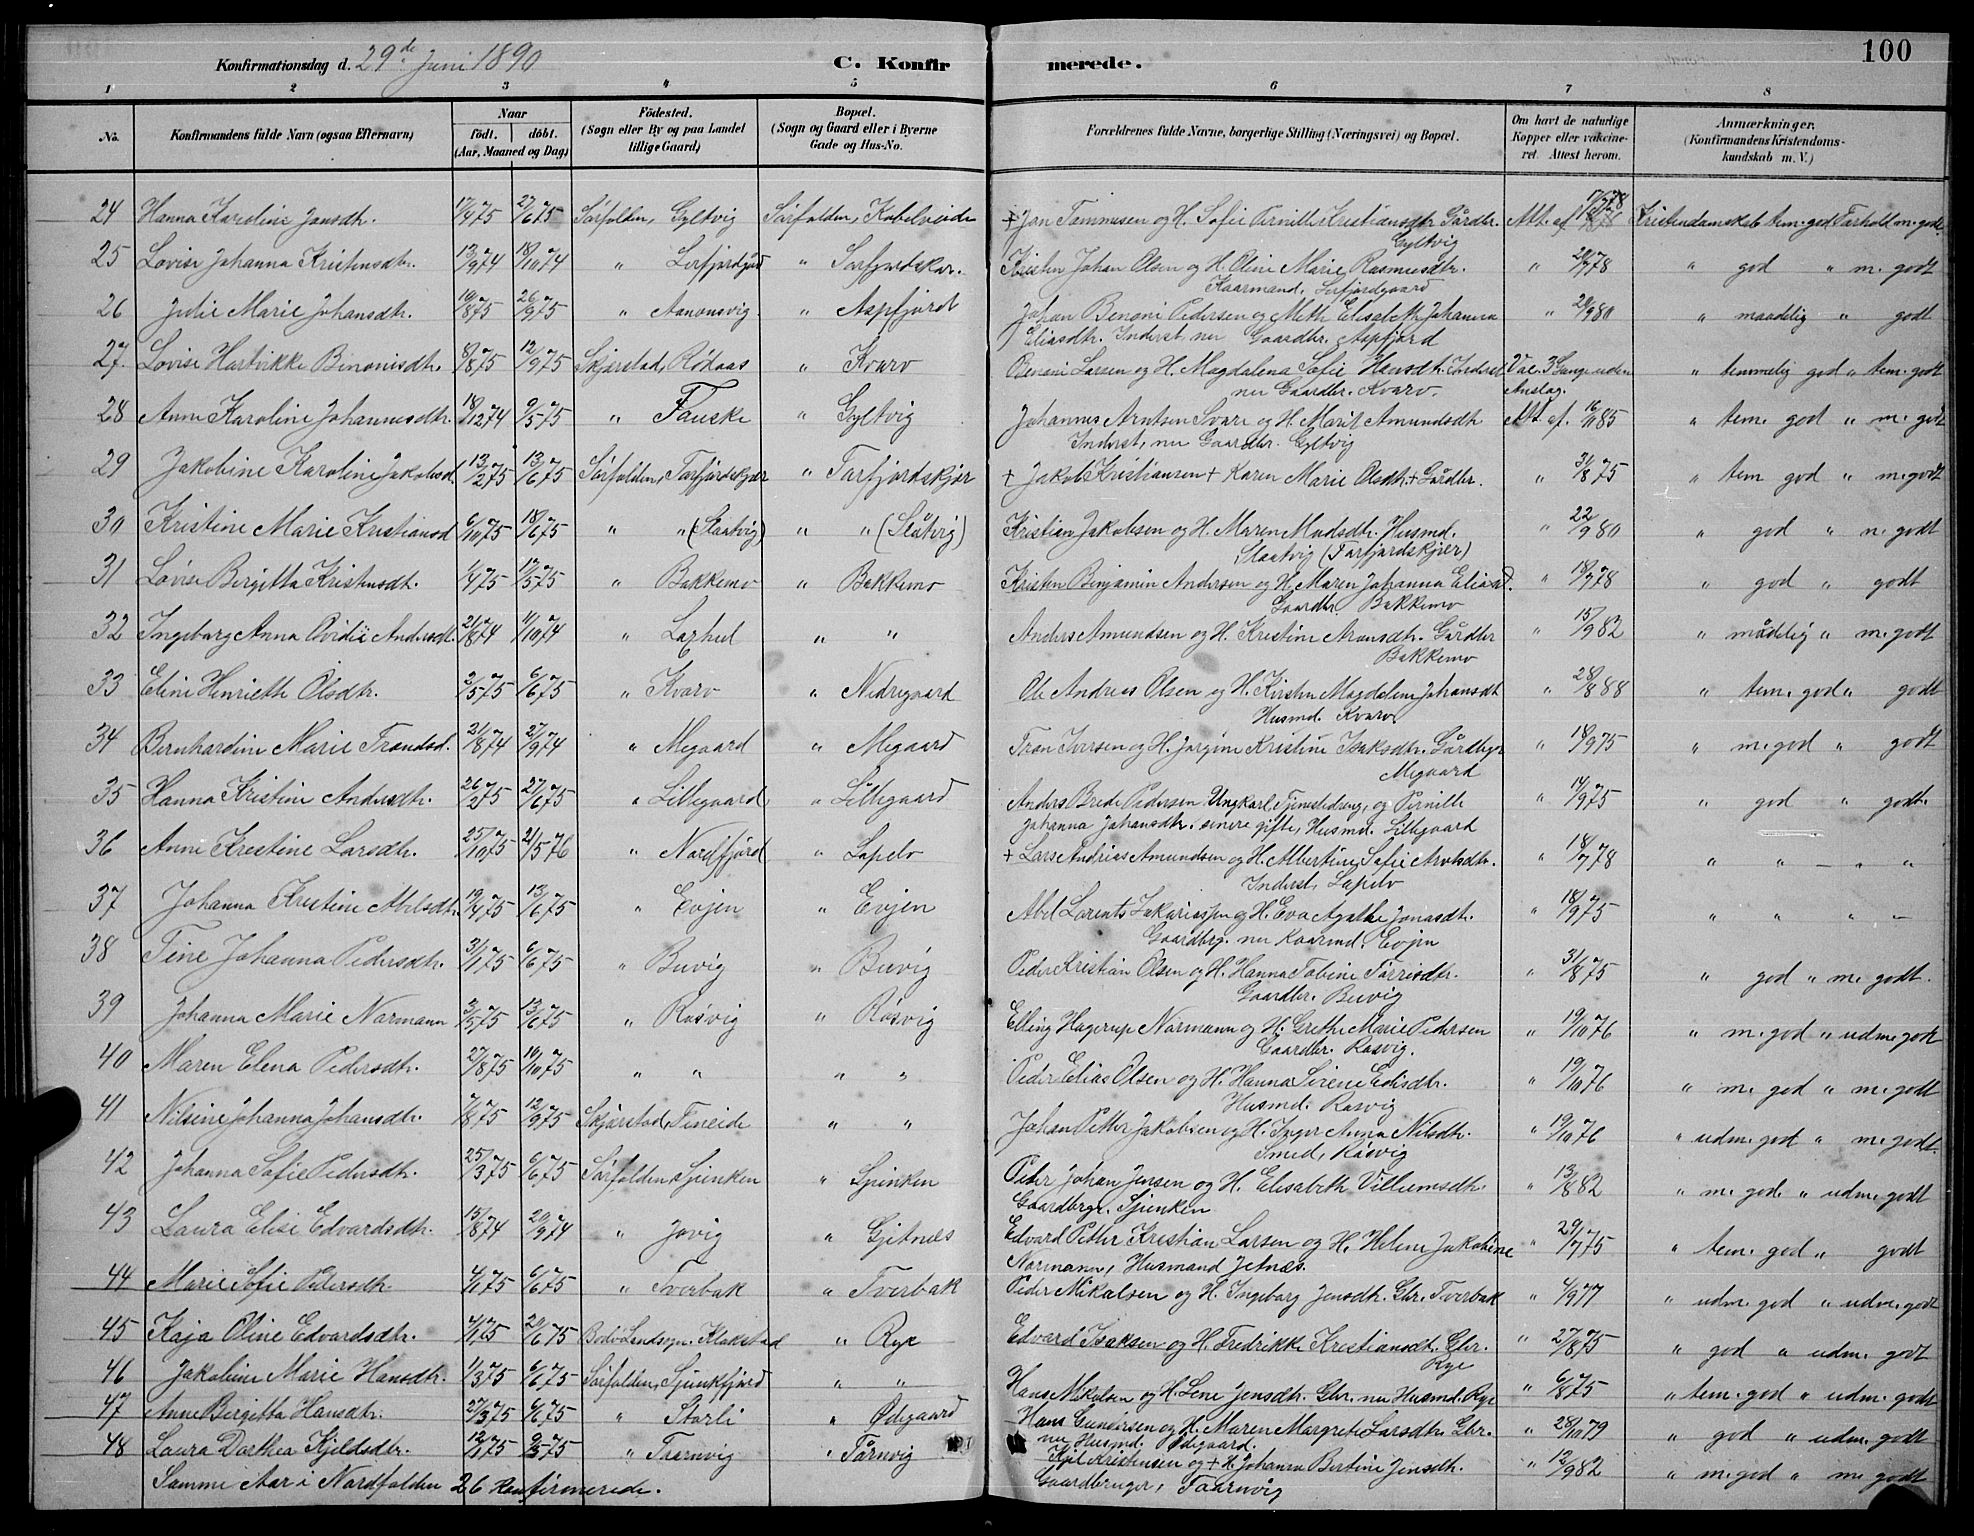 Konfirmationsdag d. 29de Juni 1890 C. Konfirmerede. 100
1 2 3 4 5 6 7 8
No. Konfirmandens fulde Navn (ogsaa Efternavn) Naar födt. döbt. (Aar, Maaned og Dag) Födested. (Sogn eller By og paa Landet tillige Gaard) Bopæl. (Sogn og Gaard eller i Byerne Gade og Hus-No. Forældrenes fulde Navne, borgerlige Stilling (Næringsvei) og Bopæl. Om havt de naturlige Kopper eller vakcineret. Attest herom. Anmærkninger. (Konfirmandens Kristendomskundskab m. V.)
24 Hanna Karoline Jonsdtr. 17/4 75 27/6 75 Sörfolden, Gyltvig Sörfolden, Kobelveide + Jon Tommesen og H. Sofie Pernille Kristiansdtr. Gårdbr. Gyltvig Att. af Kristendomskab tem. god Forhold m. godt
25 Lovise Johanna Kristensdtr. 13/9 74 18/10 74 " Lerfjordgård " Sørfjordskar. Kristen Johan Olsen og H. Oline Marie Rasmusdtr. Kaarmand, Lerfjordgaard " 20/7 78 " god " m. godt
26 Julie Marie Johansdtr. 19/8 75 26/9 75 " Aanonsvig " Aspfjord Johan Benoni Pedersen og Meth Elisabeth Johanna Eliasdtr. Inderst nu Gaardbr. Aspfjord " 20/9 80 " maadelig " godt
27. Lovise Hartvikke Binonisdtr. 8/8 75 12/9 75 Skjerstad, Rödaas " Kvarv Benoni Larsen og H. Magdalena Sofie Hansdtr. Inderst nu Gaardbr. Kvarv. Vac. 3 Gange uden Anslag. " temmelig god " tem. godt
28 Anne Karoline Johannesdtr. 18/12 74 9/5 75 " Fauske " Gyltvig Johannes Arntsen Svare og H. Marit Amundsdtr Inderst, nu Gaardbr. Gyltvig Att. af. 16/11 85 " tem. god " m. godt
29 Jakobine Karoline Jakobsd. 13/2 75 13/6 75 Sörfolden, Tørfjordskjær " Tørfjordskjær + Jakob Kristiansen + Karen Marie Olsdtr. + Gårdbr. " 31/8 75 " tem god " m. godt
30 Kristine Marie Kristiansd. 6/10 75 18/6 75 " " (Slaatvig) " " (Slåtvig) Kristian Jakobsen og H. Maren Madsdtr. Husmd. Slaatvig (Tørfjordskjær) " 22/9 80 " god " n. godt
31 Lovise Birgitta Kristensdtr. 1/4 75 17/5 75 " Bakkemo " Bakkemo Kristen Benjamin Andersen og H. Maren Johanna Eliasd. Gaardbr. Bakkemo " 18/7 78 " god " godt
32 Ingeborg Anna Ovidie Andersdtr. 21/8 74 11/10 74 " Laxhol " " Anders Amundsen og H. Kristine Aronsdtr. Gårdbr Bakkemo " 15/9 82 " mådelig " m. godt
33 Eline Henrieth Olsdtr. 2/5 75 6/6 75 " Kvarv " Nedregaard Ole Andreas Olsen og H. Kirsten Magdelene Johansdt Husmd. Kvarv " 28/8 88 " tem. god " godt
34 Bernhardine Marie Trondsd. 21/8 74 27/9 74 " Megaard " Megaard Tron Iversen og H. Jørgine Kristine Isaksdtr. Gårdbgr Megaard " 18/9 75 " m. god " godt
35 Hanna Kristine Andersdtr. 26/2 75 21/6 75 " Lillegaard " Lillegaard Anders Brede Pedersen Ungkarl Tjenestedreng, og Pernille Johanna Johansdtr. senere gifte, Husmd. Lillegaard " 14/9 75 " god " godt.
36 Anne Kristine Larsdtr. 25/10 75 21/5 76 " Nordfjord " Lapelv + Lars Andreas Amundsen og H. Albertine Sofie Arntsdtr. Inderst, Lapelv " 18/7 78 " " — " "
37 Johanna Kristine Abelsdtr. 19/4 75 13/6 75 " Evjen " Evjen Abel Lorents Sakariassen og H. Eva Agathe Jonasdtr. Gaardbrg. nu Kaarmd. Evjen " 18/9 75 " " " "
38 Tine Johanna Pedersdtr. 31/1 75 6/6 75 " Buvig " Buvig Peder Kristian Olsen og H. Hanna Tobine Tørrisdtr. Gaardbr. Buvig " 31/8 75 " god " m. godt.
39 Johanna Marie Normann 3/5 75 13/6 75 " Røsvig " Røsvig Elling Hagerup Normann og H. Grethe Marie Pedersen Gaardbr. Røsvig. " 19/10 76 " m. god " udm. godt
40 Maren Elena Pedersdtr. 27/8 75 10/10 75 " " " " Peder Elias Olsen og H. Hanna Sirene Eolisdtr. Husmd. Røsvig " 19/10 76 " m. god " m. godt
41 Nilsine Johanna Johansdtr. 7/8 75 12/9 75 Skjerstad, Fineide " " Johan Petter Jakobsen og H. Inger Anna Nilsdtr. Smed, Røsvig " 19/10 76 " udm. god " m. godt.
42 Johanna Sofie Pedersdtr. 25/3 75 6/6 75 Sörfolden Sjunken " Sjunken Peder Johan Jensen og H. Elisabeth Villumsdtr. Gaardbrgr. Sjunken " 13/8 82 " m. god " udm. godt
43 Laura Elise Edvardsdtr. 15/8 74 20/9 74 " Jøvig " Gjetnæs Edvard Petter Kristian Larsen og H. Helene Jakobine Normann, Husmand Jetnæs. " 29/7 75 " tem. god " godt
44 Marie Sofie Pedersdtr. 4/1 75 6/6 75 " Tverbak " Tverbak Peder Mikalsen og H. Ingeborg Jensdtr. Gbr. Tverbak " 4/9 77 " udm. god " udm. godt
45 Kaja Oline Edvardsdtr. 4/1 75 20/6 75 Bodö Landsogn. Klokstad " Rye Edvard Isaksen og H. Fredrikke Kristiansdtr. Gbr. Rye " 27/8 75 " god " udm. godt
46 Jakobine Marie Hansdtr. 1/3 75 6/6 75 Sörfolden, Sjunkfjord " " Hans Mikalsen og H. Lene Jensdtr. Gbr. nu Husmd. Rye " 6/8 75 " tem. god " udm. godt
47 Anne Birgitta Hansdtr. 27/3 75 6/6 75 " Storli " Ødegaard Hans Gundersen og H. Maren Margrete Larsdtr. Gbr. nu Husmd. Ødegaard. " 28/10 79 " god " udm. godt
48 Laura Dorthea Kjeldsdtr. 12/1 75 9/5 75 " Traanvig " Tårnvig Kjel Kristensen og + H. Johanna Bertine Jensdtr. Gaardbruger, Taarnvig " 12/9 82 " m. god " m. godt
Samme Aar i Nordfolden 26 Konfirmerede.